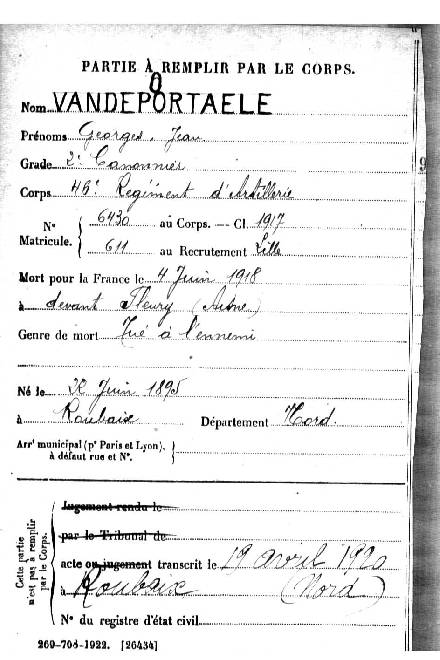 PARTIE À REMPLIR PAR LE CORPS.
Nom VANDEPORTAELE
O
Prénoms Georges, Jean
Grade 2e Canonnier
Corps 46e Régiment d'Artillerie
N° Matricule. { 6430 au Corps. — Cl. 1917
611 au Recrutement Lille
Mort pour la France le 4 Juin 1918
à devant Fleury (Aisne)
Genre de mort Tué à l'ennemi
Né le 22 Juin 1895
à Roubaix Département Nord.
Arrt municipal (pr Paris et Lyon),
à défaut rue et N°.
Cette partie n'est pas à remplir par le Corps.
Jugement rendu le
par le Tribunal de
acte ou jugement transcrit le 19 avril 1920
à Roubaix (Nord)
N° du registre d'état civil
269-708-1922. [26434]